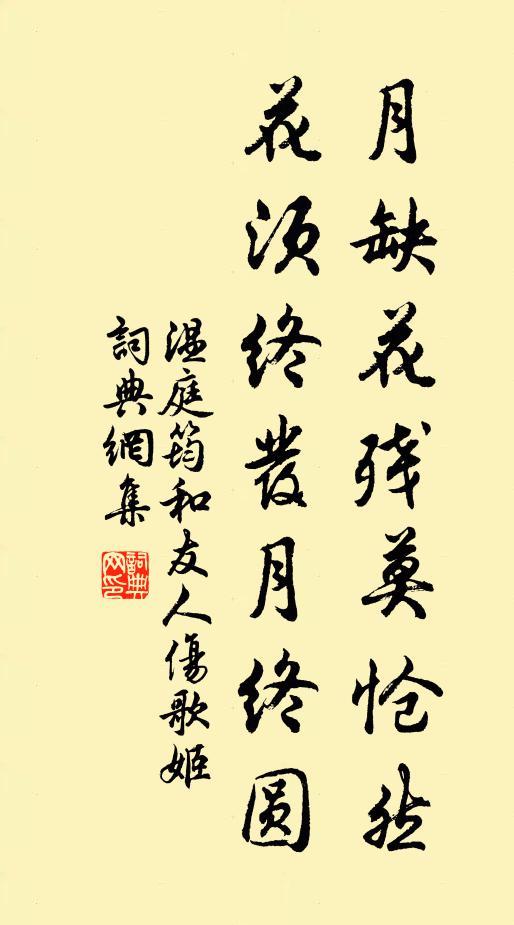 月缺花残莫怆然
花须终發月终圆
温庭筠和友人傷歌姬
詞典網集
詞典網印